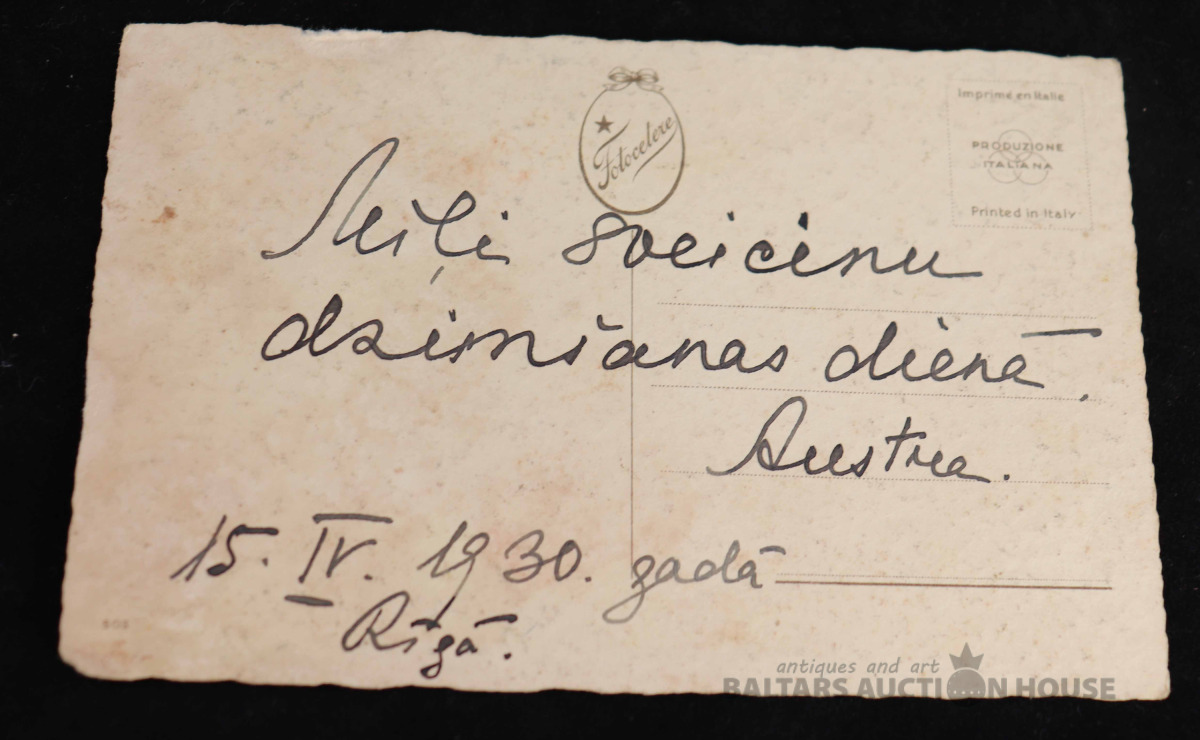 Imprimé en Italie
Fotocelere
PRODUZIONE
ITALIANA
Printed in Italy
Mīļi sveicinu
dzimšanas dienā.
Austra.
15. IV. 1930. gadā
Rīgā.
antiques and art
BALTARS AUCTION HOUSE